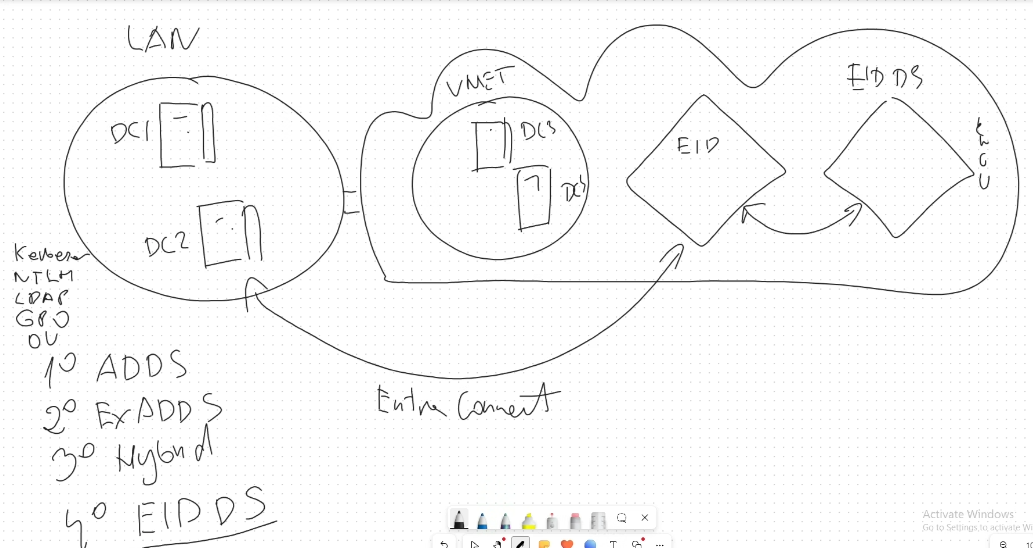 LAN
VMET
EID DS
DC1
DC3
EID
DC2
Kerberos
NTLM
LDAP
GPO
OU
1º ADDS
2º ExADDS
3º Hybrid
4º EIDDS
Entra Connect
Activate Windows
Go to Settings to activate Wi